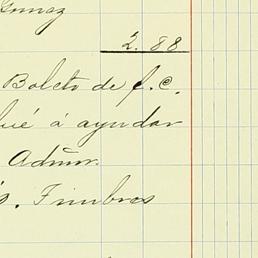 Gomez
2.88
Boleto de f.c.
fué á ayudar
Admor.
s. Timbres